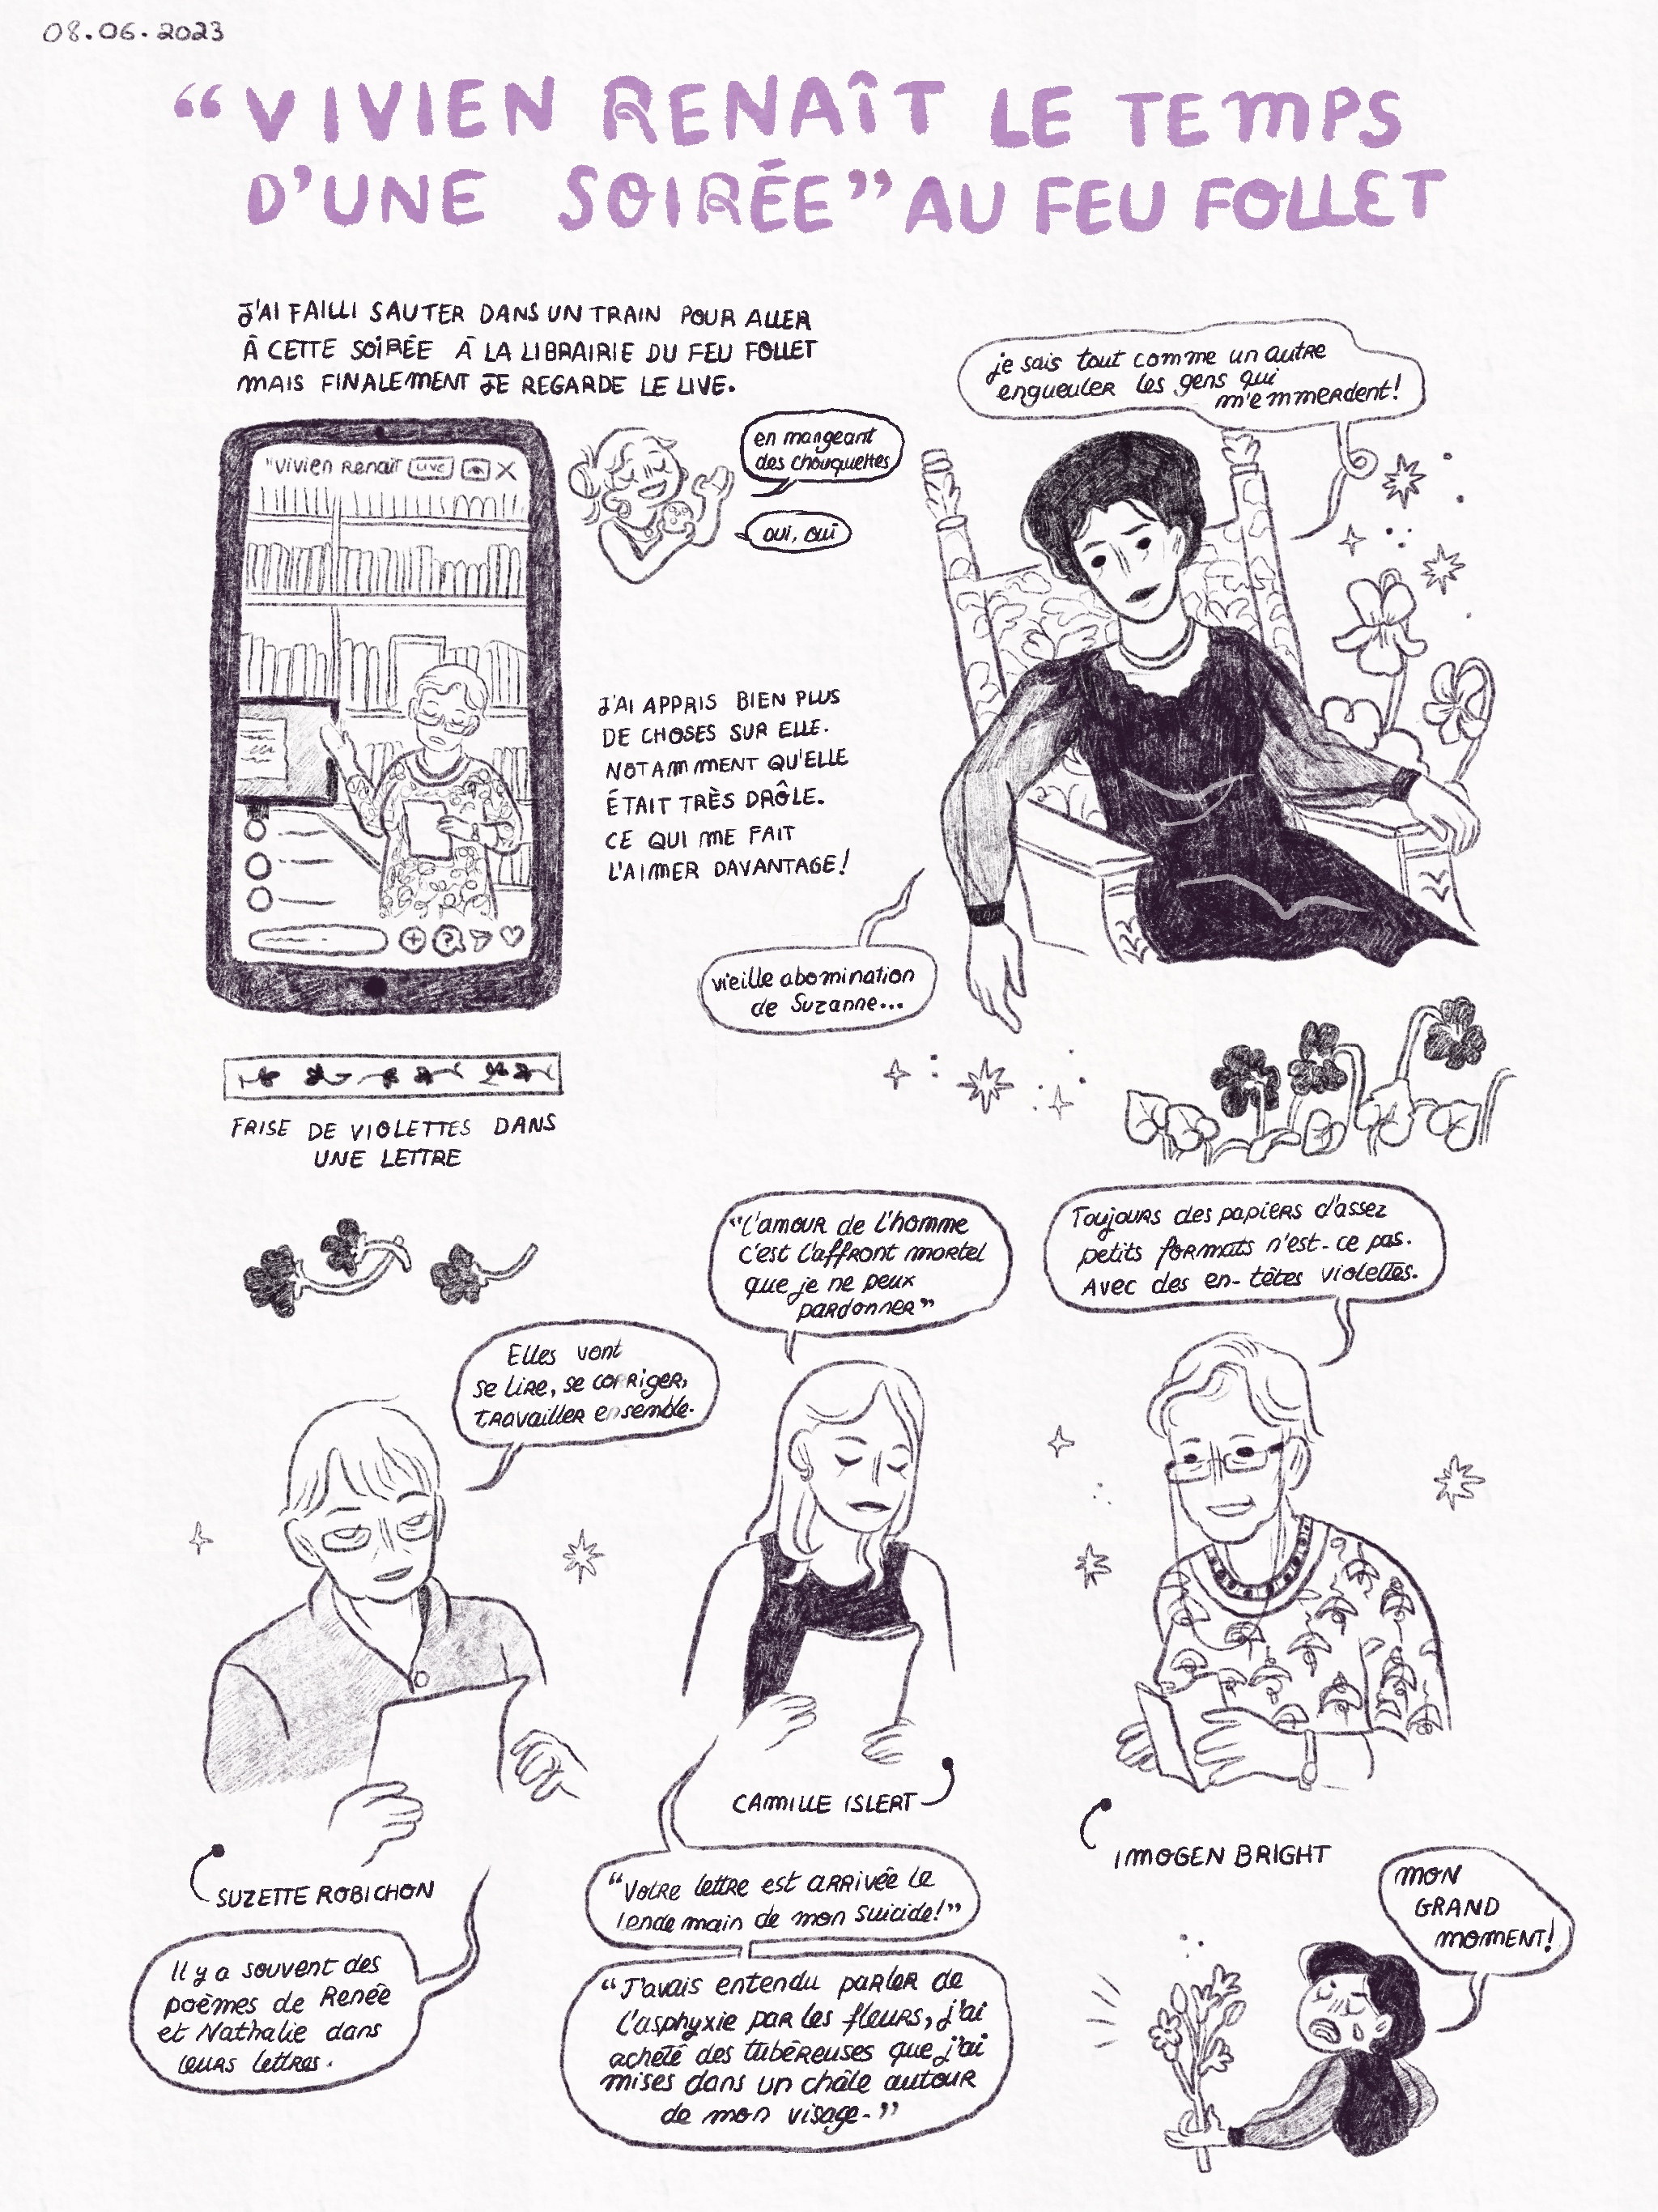 08.06.2023
“VIVIEN RENAÎT LE TEMPS
D'UNE SOIRÉE” AU FEU FOLLET
J'AI FAILLI SAUTER DANS UN TRAIN POUR ALLER
À CETTE SOIRÉE À LA LIBRAIRIE DU FEU FOLLET
MAIS FINALEMENT JE REGARDE LE LIVE.
"Vivien Renaît LIVE
en mangeant
des chouquettes
oui, oui
je sais tout comme un autre
engueuler les gens qui
m'emmerdent!
J'AI APPRIS BIEN PLUS
DE CHOSES SUR ELLE.
NOTAMMENT QU'ELLE
ÉTAIT TRÈS DRÔLE.
CE QUI ME FAIT
L'AIMER DAVANTAGE!
vieille abomination
de Suzanne...
FRISE DE VIOLETTES DANS
UNE LETTRE
Elles vont
se lire, se corriger,
travailler ensemble.
“L'amour de l'homme
c'est l'affront mortel
que je ne peux
pardonner”
Toujours des papiers d'assez
petits formats n'est-ce pas.
Avec des en-têtes violettes.
SUZETTE ROBICHON
CAMILLE ISLERT
IMOGEN BRIGHT
Il y a souvent des
poèmes de Renée
et Nathalie dans
leurs lettres.
“Votre lettre est arrivée le
lendemain de mon suicide!”
“J'avais entendu parler de
l'asphyxie par les fleurs, j'ai
acheté des tubéreuses que j'ai
mises dans un châle autour
de mon visage.”
MON
GRAND
MOMENT!